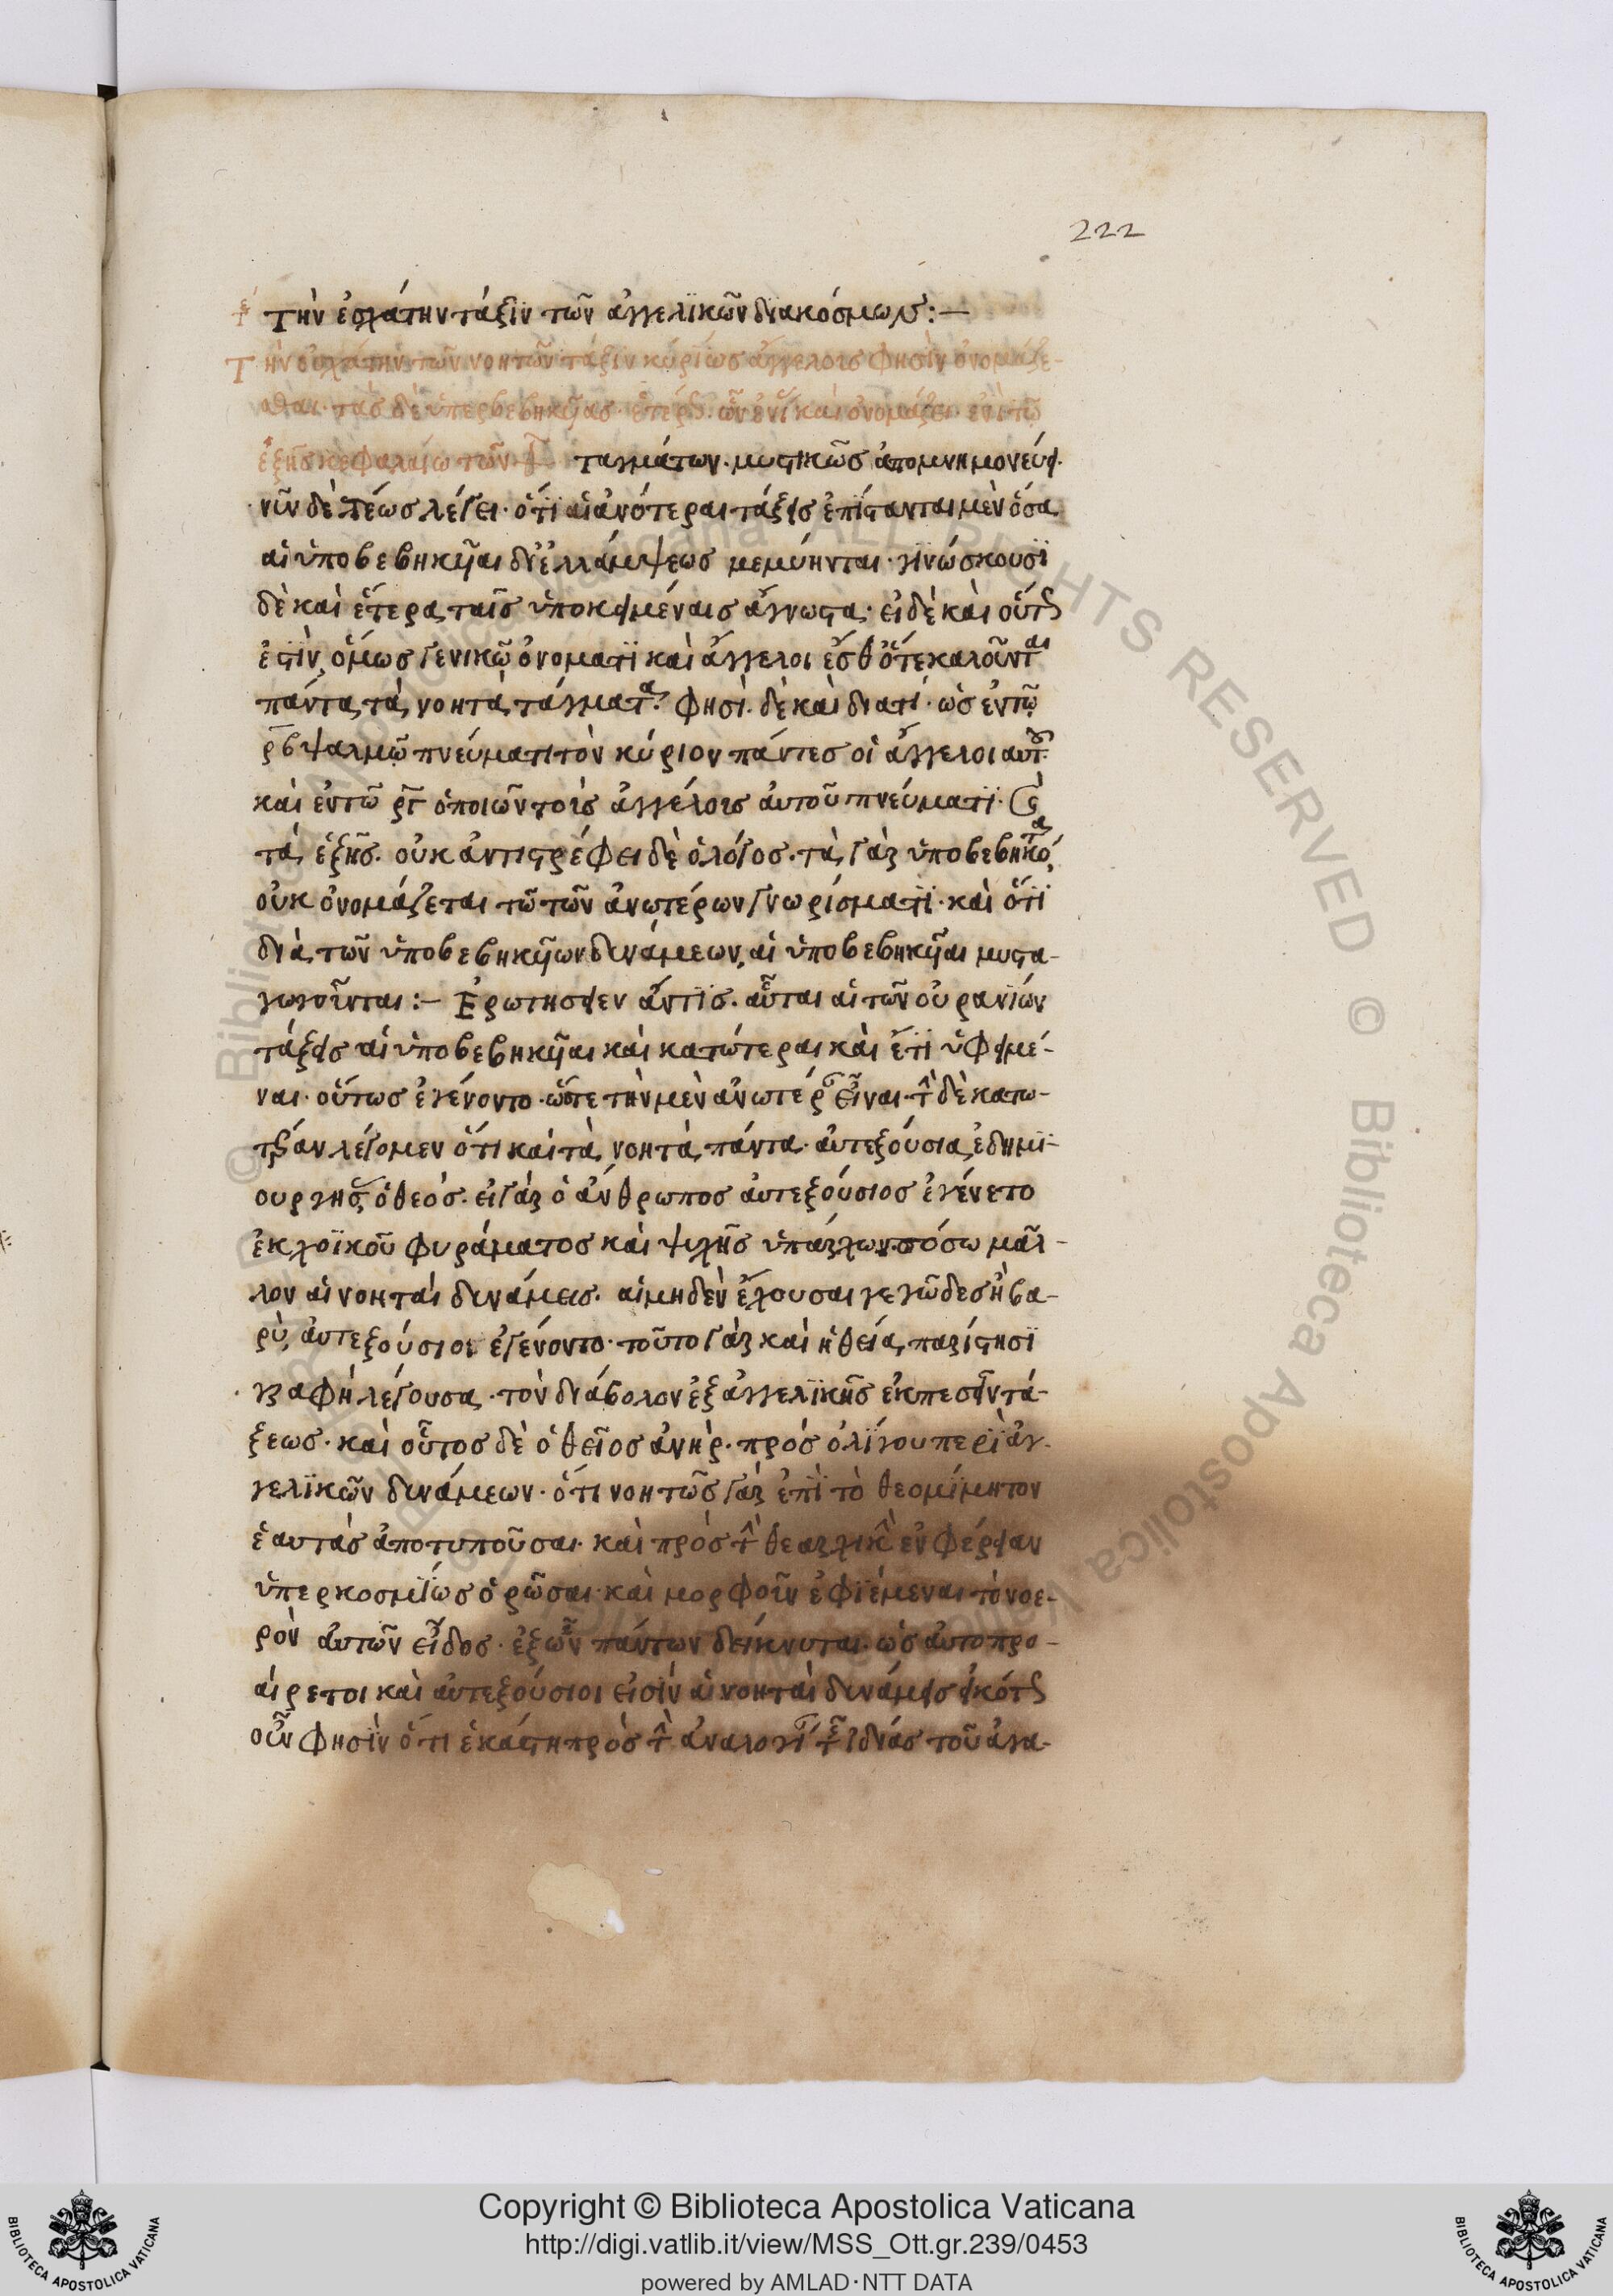 222
τὴν ἐσχάτην τάξιν τῶν ἀγγελϊκῶν διακόσμων:—
Τὴν ἐσχάτην τῶν νοητῶν τάξιν κυρίως ἀγγέλοις φησὶν ὀνομάζε-
σθαι· τὰς δὲ ὑπερβεβηκυίας· ὧν καὶ ὀνομάζει ἐν τῷ
ἑξῆς κεφαλαίω τῶν ταγμάτων· μυστικῶς ἀπομνημονεύει·
νῦν δὲ τέως λέγει· ὅτϊ αἱ ἀνώτεραι τάξεις ἐπίστανται μὲν ὅσα
αἱ ὑποβεβηκυῖαι δι' ἐλλάμψεως μεμύηνται· γϊνώσκουσϊ
δὲ καὶ ἕτερα ταῖς ὑποκειμέναις ἄγνωστα· εἰ δὲ καὶ οὕτως
ἐστὶν, ὅμως γενικῷ ὀνόματϊ καὶ ἄγγελοι ἔσθ' ὅτε καλοῦνται
πάντα τὰ νοητὰ τάγματα· φησὶ δὲ καὶ διατί· ὡς ἐν τῷ
ρβ ψαλμῷ πνεύματι τὸν κύριον πάντες οἱ ἄγγελοι αὐτοῦ·
καὶ ἐν τῶ ργ ὁ ποιῶν τοὺς ἀγγέλους αὐτοῦ πνεύματϊ· καὶ
τὰ ἑξῆς. οὐκ ἀντιστρέφει δὲ ὁ λόγος· τὰ γὰρ ὑποβεβηκότα
οὐκ ὀνομάζεται τῶ τῶν ἀνωτέρων γνωρίσματϊ· καὶ ὅτϊ
διὰ τῶν ὑποβεβηκυιῶν δυνάμεων, αἱ ὑποβεβηκυῖαι μυστα-
γωγοῦνται:— Ἐρωτήσειεν ἄν τϊς· αὗται αἱ τῶν οὐρανϊων
τάξεις αἱ ὑποβεβηκυῖαι καὶ κατώτεραι καὶ ἔτϊ ὑφειμέ-
ναι· οὕτως ἐγένοντο· ὥστε τὴν μὲν ἀνωτέραν εἶναι· τὴν δὲ κατω-
τέραν λέγομεν ὅτι καὶ τὰ νοητὰ πάντα· αὐτεξούσια ἐδημϊ-
ούργησεν ὁ θεός· εἰ γὰρ ὁ ἄνθρωπος αὐτεξούσιος ἐγένετο
ἐκ χοϊκοῦ φυράματος καὶ ψιλῆς ὑπάρχων· πόσω μᾶλ-
λον αἱ νοηταὶ δυνάμεις· αἱ μηδὲν ἔχουσαι γεῶδες ἢ βα-
ρὺ, αὐτεξούσιοι ἐγένοντο· τοῦτο γὰρ καὶ ἡ θεία παρίστησϊ
γραφὴ λέγουσα· τὸν διάβολον ἐξ ἀγγελϊκῆς ἐκπεσεῖν τά-
ξεως· καὶ οὗτος δὲ ὁ θεῖος ἀνὴρ· πρὸς ὀλίγου περὶ ἀγ-
γελϊκῶν δυνάμεων· ὅτι νοητῶς γὰρ ἐπὶ τὸ θεομίμητον
ἑαυτὰς ἀποτυποῦσαι· καὶ πρὸς τὴν θεαρχικὴν ἐμφέρειαν
ὑπερκοσμίως ὁρῶσαι· καὶ μορφοῦν ἐφιέμεναι τὸ νοε-
ρὸν αὐτῶν εἶδος· ἐξ ὧν πάντων δείκνυται· ὡς αὐτοπρο-
αίρετοι καὶ αὐτεξούσιοι εἰσὶν αἱ νοηταὶ δυνάμεις εἰκότως
οὖν φησὶν ὅτι ἑκάστη πρὸς τὴν ἀναλογίαν τῆς ἰδίας τοῦ ἀγα-
Copyright © Biblioteca Apostolica Vaticana
http://digi.vatlib.it/view/MSS_Ott.gr.239/0453
powered by AMLAD·NTT DATA